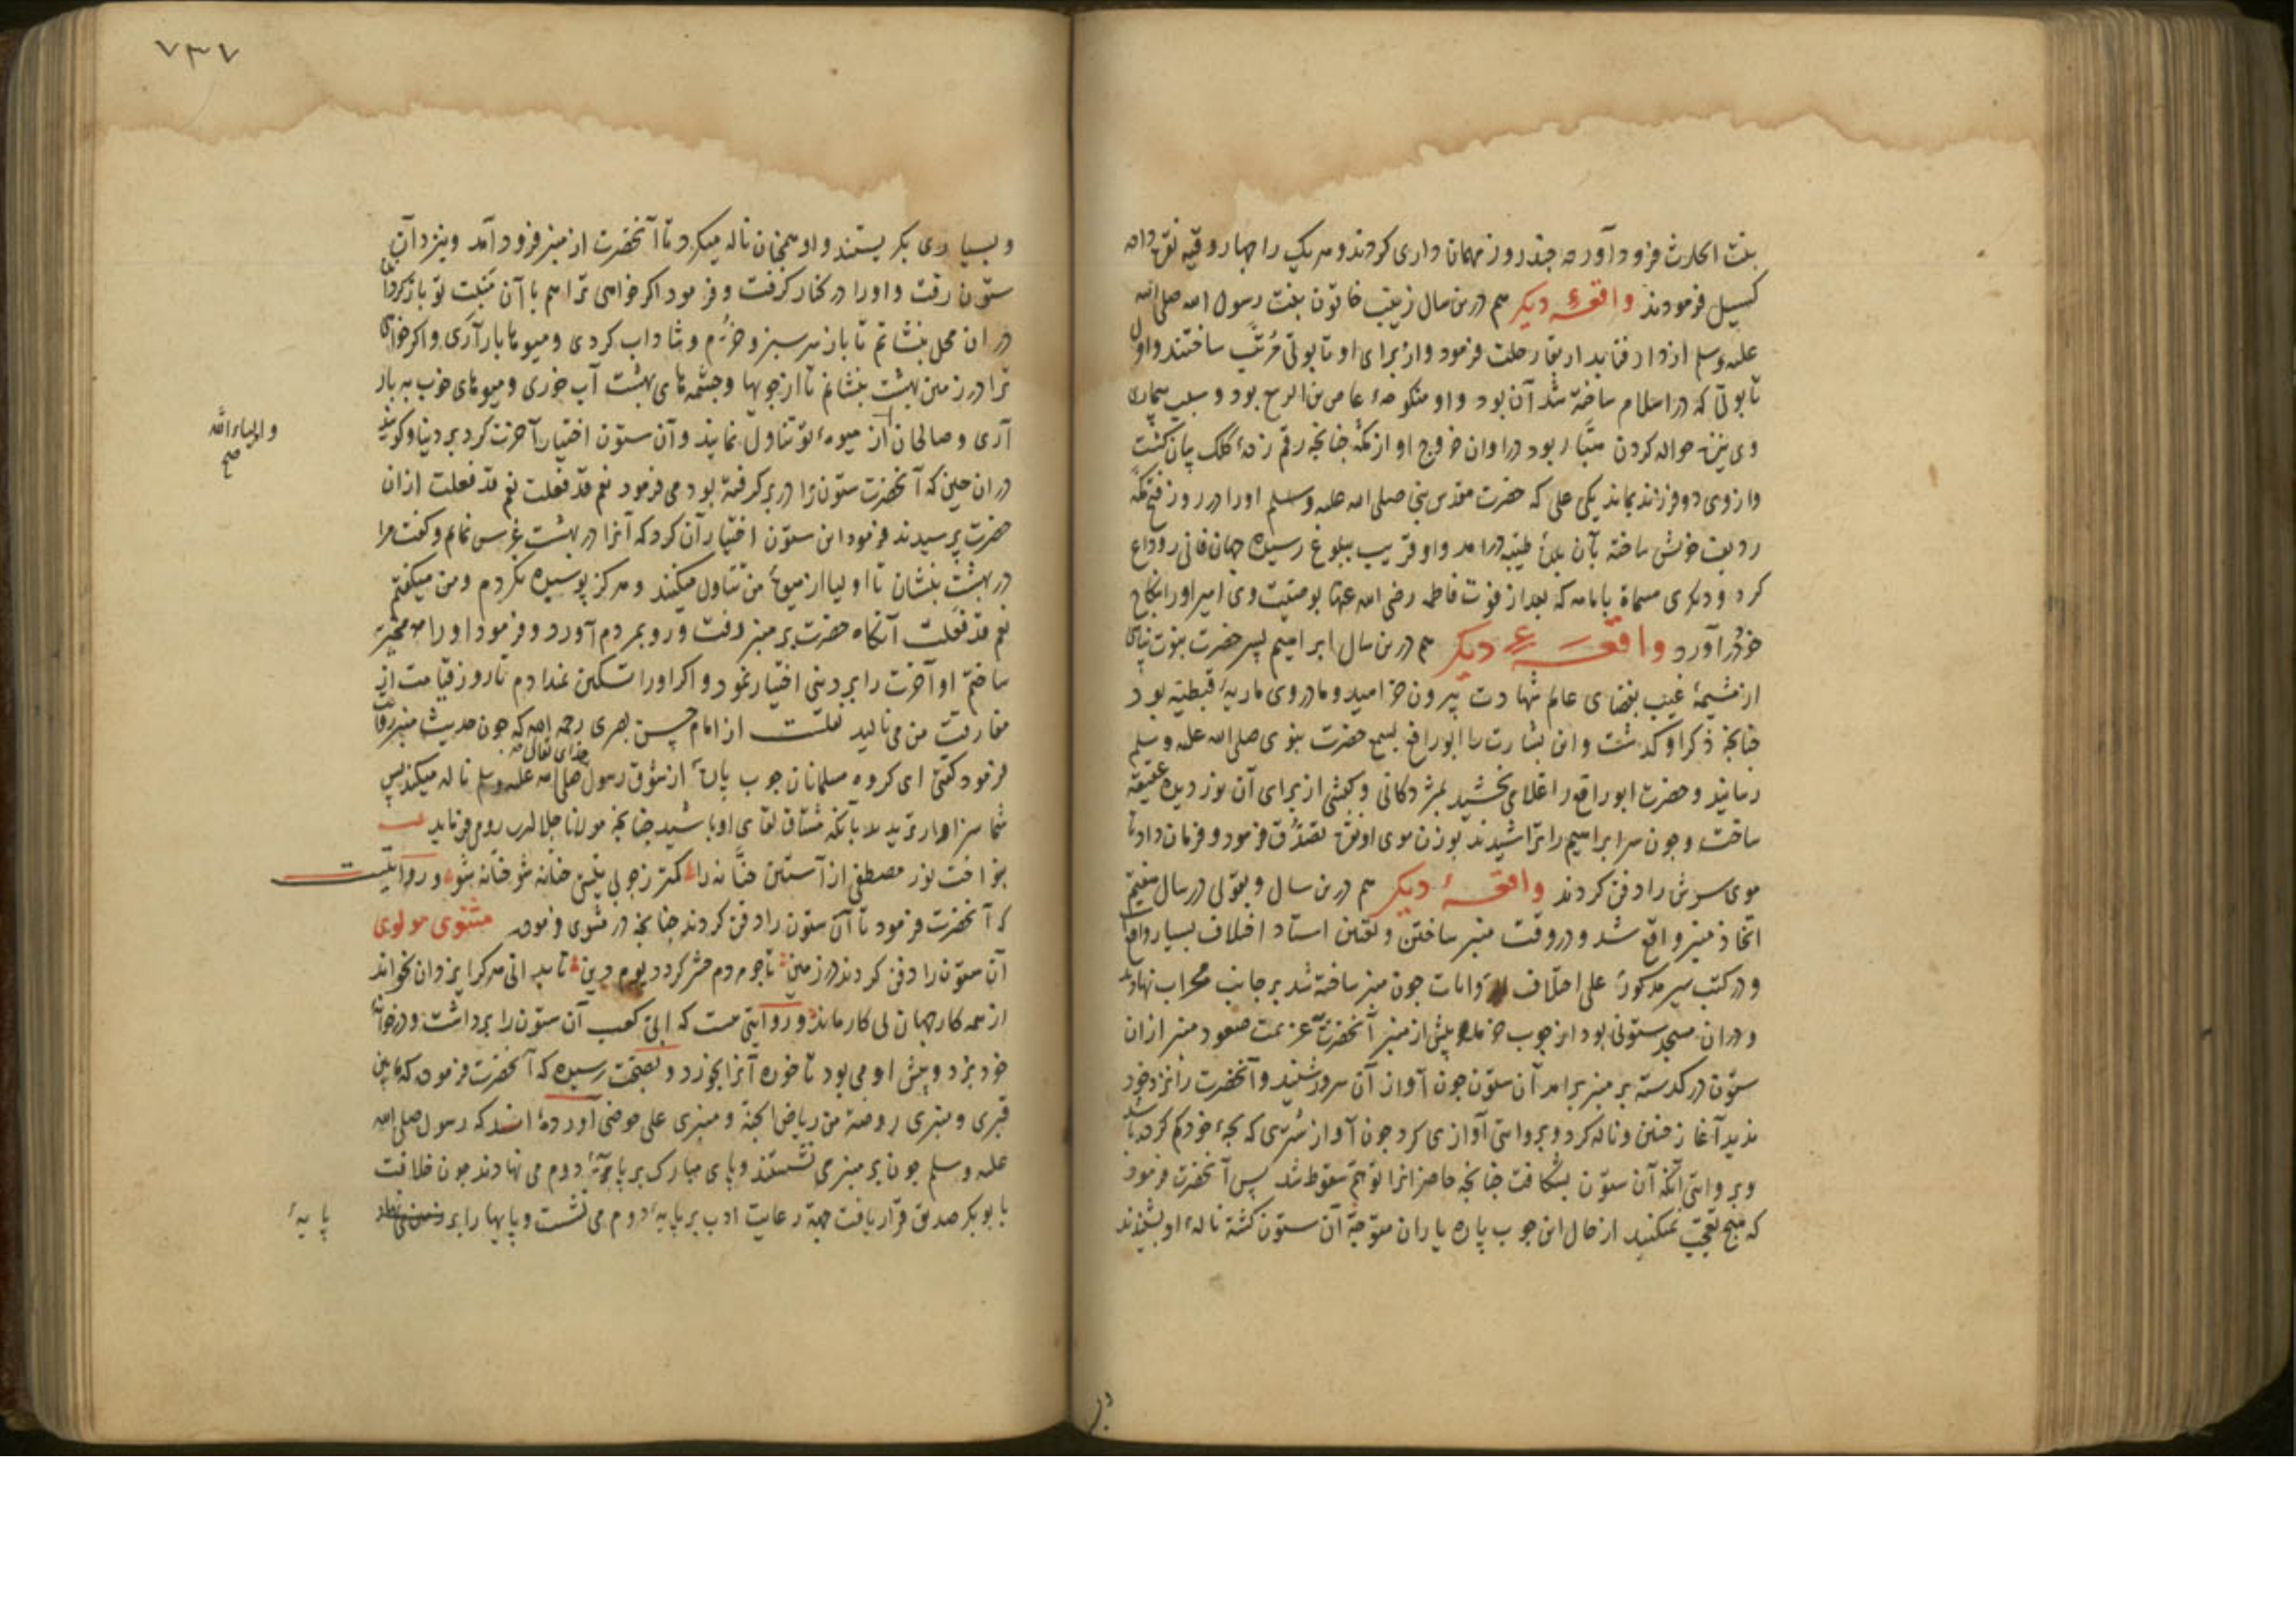 بنت الحارث فرود آورده چند روز مهمان داری کردند و هر یک را چهار وقیه نقره داده
کسیل فرمودند واقعهٔ دیکر هم درین سال زینب خاتون بنت رسول الله صلی الله
علیه وسلم از دار فنا بدار بقا رحلت فرمود و از برای او تابوتی مرتب ساختند و اول
تابوتی که در اسلام ساخته شد آن بود و او منکوحهٔ عاص بن الربیع بود و سبب بیماری
وی نیزه حواله کردن هبّار بود در اوان خروج او از مکه چنانچه رقم زدهٔ کلک بیان کشت
و از وی دو فرزند بماند یکی علی که حضرت مقدس نبی صلی الله علیه وسلم او را در روز فتح مکه
ردیف خویش ساخته بآن بلدهٔ طیبه درامد و او قریب ببلوغ رسیده جهان فانی را وداع
کرد و دیکری مسماة بامامه که بعد از فوت فاطمه رضی الله عنها بوصیت وی امیر او را بنکاح
خود درآورد واقعهٔ دیکر هم درین سال ابراهیم پسر حضرت نبوت پناهی
از مشیمهٔ غیب بفضای عالم شهادت بیرون خرامید و مادر وی ماریهٔ قبطیه بود
چنانچه ذکر او کذشت و این بشارت را ابو رافع بسمع حضرت نبوی صلی الله علیه وسلم
رسانید و حضرت ابو رافع را غلامی بخشید بمژدکانی و کبشی از برای آن نور دیده عقیقه
ساخت و چون سر ابراهیم را تراشیدند بوزن موی او نقره تصدّق فرمود و فرمان داد تا
موی سرش را دفن کردند واقعهٔ دیکر هم درین سال و بقولی در سال هفتم
اتخاذ منبر واقع شد و در وقت منبر ساختن و تعیین استاد اختلاف بسیار واقع است
و در کتب سیر مذکور علی اختلاف الروایات چون منبر ساخته شد بر جانب محراب نهادند
و دران مسجد ستونی بود از چوب خرما پیش از منبر آنحضرت عزیمت صعود منبر ازان
ستون در کذشته بر منبر برامد آن ستون چون آواز آن سرور شنید و آنحضرت را نزد خود
ندید آغاز حنین و ناله کرد و بروایتی آوازی کرد چون آواز شتری که بچهٔ خود کم کرده باشد
و بروایتی آنکه آن ستون بشکافت چنانچه حاضرانرا توهم سقوط شد پس آنحضرت فرمود
که هیچ تعجب نمیکنید از حال این چوب پاره یاران متوجه آن ستون کشته نالهٔ او بشنیدند
۷۳۷
و بسیاری بکریستند و او همچنان ناله میکرد تا آنحضرت از منبر فرود آمد و بنزد آن
ستون رفت و او را در کنار کرفت و فرمود اکر خواهی ترا هم با آن منبت تو بازکردانم
دران محل بنشانم تا باز سرسبز و خرّم و شاداب کردی و میوها بار آری و اکر خواهی
ترا در زمین بهشت بنشانم تا از جویها و چشمه‌های بهشت آب خوری و میوهای خوب به بار
آری و صالحان از میوهٔ تو تناول نمایند و آن ستون اختیار آخرت کرد بر دنیا و کویند
واولیاء الله صح
دران حین که آنحضرت ستون را در بر کرفته بود می فرمود نعم قد فعلت نعم قد فعلت ازان
حضرت پرسیدند فرمود این ستون اختیار آن کرد که آنرا در بهشت غرس نمایم و کفت مرا
در بهشت بنشان تا اولیا از میوهٔ من تناول میکنند و هرکز پوسیده نکردم و من میکفتم
نعم قد فعلت آنکاه حضرت بر منبر رفت و رو بمردم آورد و فرمود او را مخیر
ساختم او آخرت را بر دنیی اختیار نمود و اکر او را تسکین نمدادم تا روز قیامت از
مفارقت من می نالید نقلست از امام حسن بصری رحمه الله که چون حدیث منبر روایت
فرمود کفتی ای کروه مسلمانان چوب پارهٔ از شوق رسول خدای تعالی صلی الله علیه وسلم ناله میکند پس
شما سزاوارترید بآنکه مشتاق لقای او باشید چنانچه مولانا جلال الدین رومی فرماید
بنواخت نور مصطفی آن استن حنّانه را کمتر ز چوبی نیستی حنانه شو حنانه شو و روایتست
که آنحضرت فرمود تا آن ستون را دفن کردند چنانچه در مثنوی فرموده مثنوی مولوی
آن ستون را دفن کردند در زمین تا چو مردم حشر کردد یوم دین تا بدانی هرکرا یزدان بخواند
از همه کار جهان بی کار ماند و روایتی هست که ابیّ کعب آن ستون را برداشت و در خانهٔ
خود برد و پیش او می بود تا خوره آنرا بخورد و بصحّت رسیده که آنحضرت فرموده که ما بین
قبری و منبری روضة من ریاض الجنة و منبری علی حوضی آورده‌اند که رسول صلی الله
علیه وسلم چون بر منبر می نشستند و پای مبارک بر پایهٔ دوم می نهادند چون خلافت
بابوبکر صدیق قرار یافت جهة رعایت ادب بر پایهٔ دوم می نشست و پایها را بر
پایهٔ